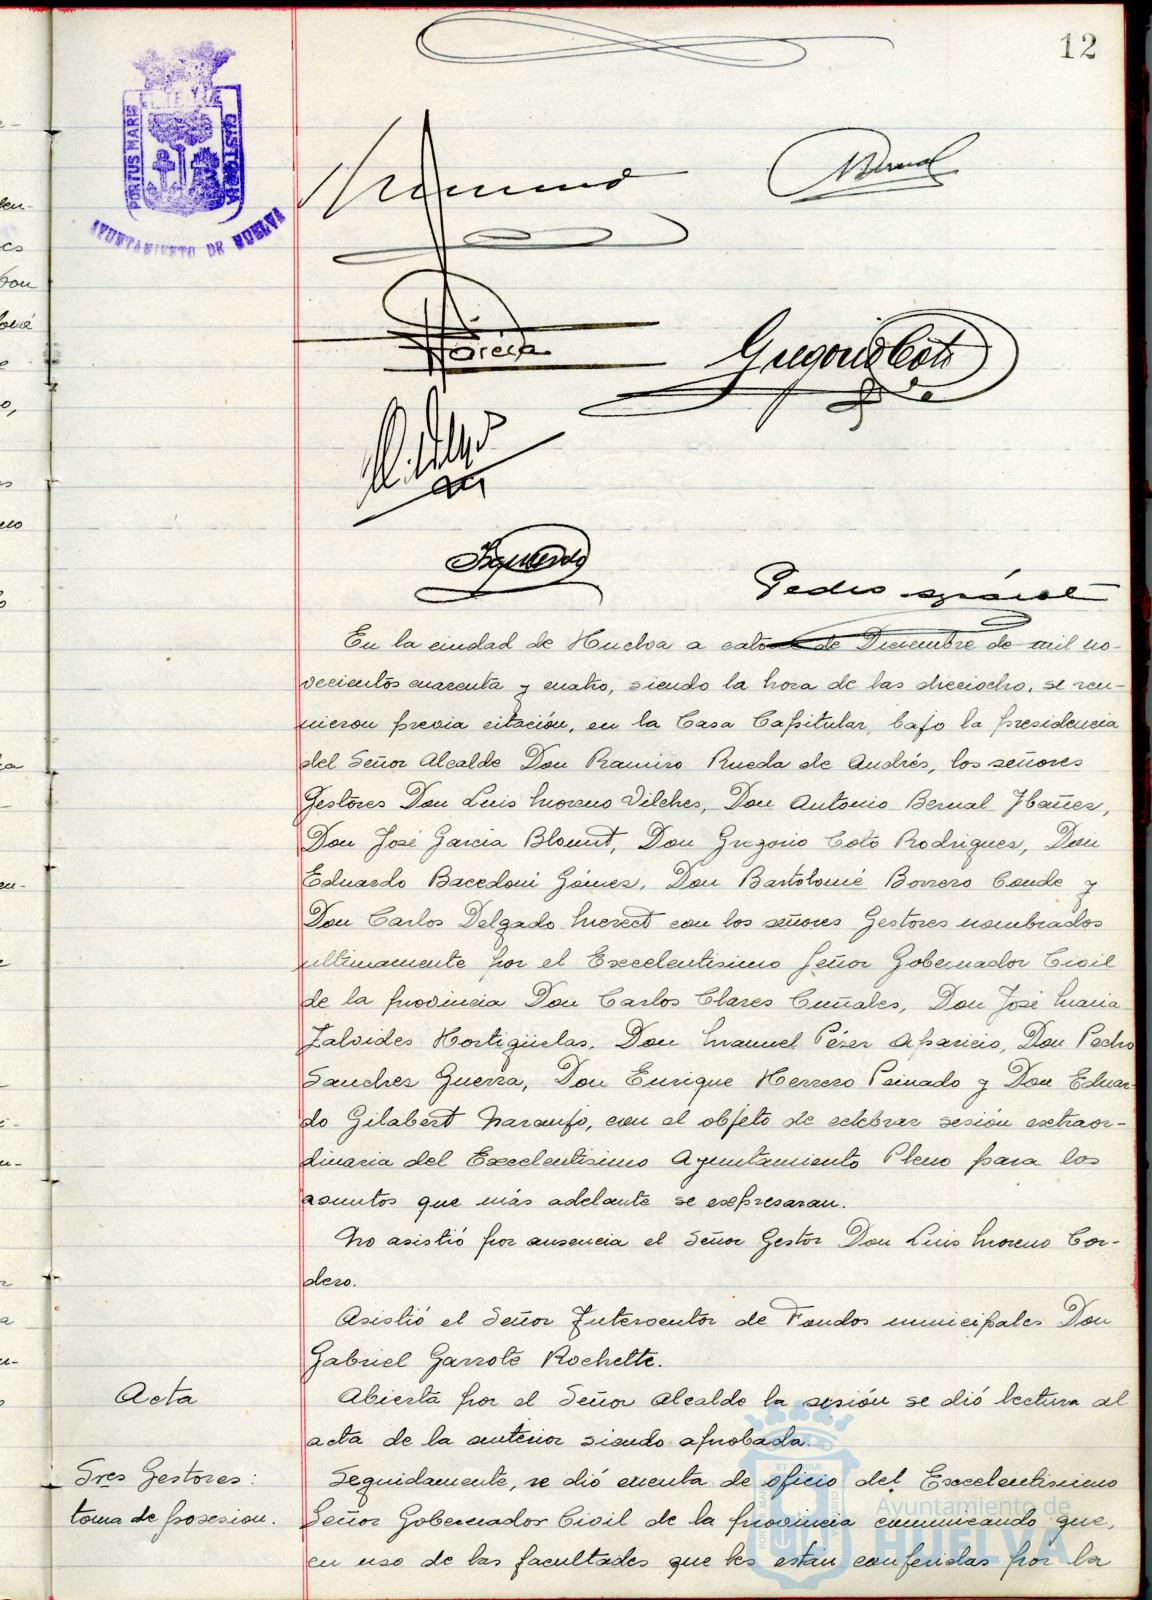 12
PORTUS MARIS
ET TERRAE
CUSTODIA
AYUNTAMIENTO DE HUELVA
Moreno
ABernal
García
Gregorio Coto
Izquierdo
Pedro
En la ciudad de Huelva a catorce de Diciembre de mil no-
vecientos cuarenta y cuatro, siendo la hora de las dieciocho, se reu-
nieron previa citación, en la Casa Capitular, bajo la presidencia
del Señor Alcalde Don Ramiro Rueda de Andrés, los señores
Gestores Don Luis Moreno Vilches, Don Antonio Bernal Ibañez,
Don José García Blount, Don Gregorio Coto Rodriguez, Don
Eduardo Bacedoni Gómez, Don Bartolomé Borrero Conde y
Don Carlos Delgado Merect con los señores Gestores nombrados
ultimamente por el Excelentisimo Señor Gobernador Civil
de la provincia Don Carlos Clares Cuñales, Don José Maria
Zalvides Hortigüelas, Don Manuel Pérez Aparicio, Don Pedro
Sanchez Guerra, Don Enrique Herrero Peinado y Don Eduar-
do Gilabert Naranjo, con el objeto de celebrar sesión extraor-
dinaria del Excelentisimo Ayuntamiento Pleno para los
asuntos que más adelante se expresaran.
No asistió por ausencia el Señor Gestor Don Luis Moreno Cor-
dero.
Asistió el Señor Interventor de Fondos municipales Don
Gabriel Garrote Rochette.
Acta
Abierta por el Señor Alcalde la sesión se dió lectura al
acta de la anterior siendo aprobada.
Sres Gestores:
toma de posesion.
Seguidamente, se dió cuenta de oficio del Excelentisimo
Señor Gobernador Civil de la provincia comunicando que,
en uso de las facultades que les estan conferidas por la
Ayuntamiento de
HUELVA